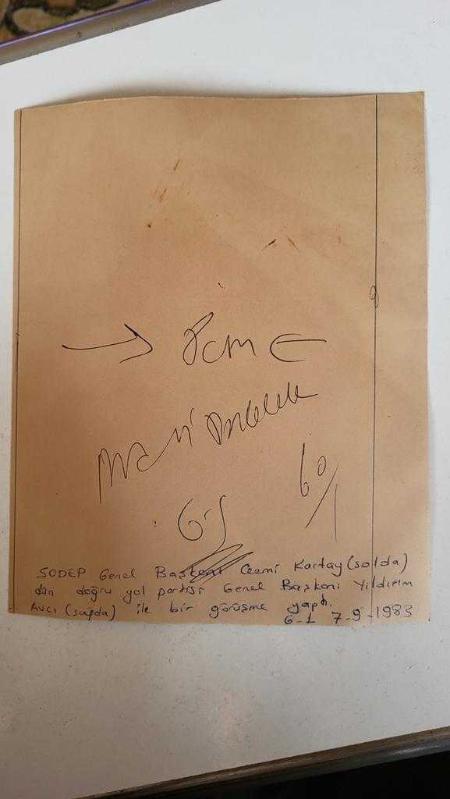 8cm
60/1
SODEP Genel Başkanı Cezmi Kartay (solda)
dan doğru yol partisi Genel Başkanı Yıldırım
Avcı (sağda) ile bir görüşme yaptı.
6-1 7-9-1983